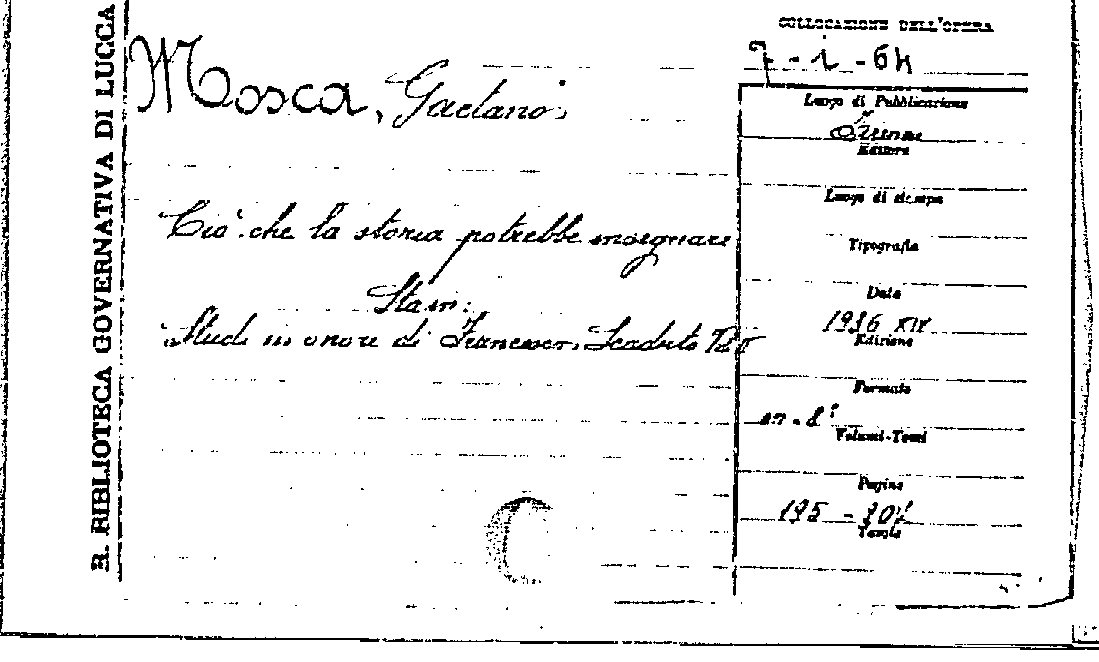 R. BIBLIOTECA GOVERNATIVA DI LUCCA
Mosca, Gaetano.
Ciò che la storia potrebbe insegnare
Sta in:
Studi in onore di Francesco Scaduto
COLLOCAZIONE DELL'OPERA
7-i-64
Luogo di Pubblicazione
Firenze
Editore
Luogo di stampa
Tipografia
Data
1936 XIV
Edizione
Formato
in-8°
Volumi-Tomi
Pagine
195 -
Tavole